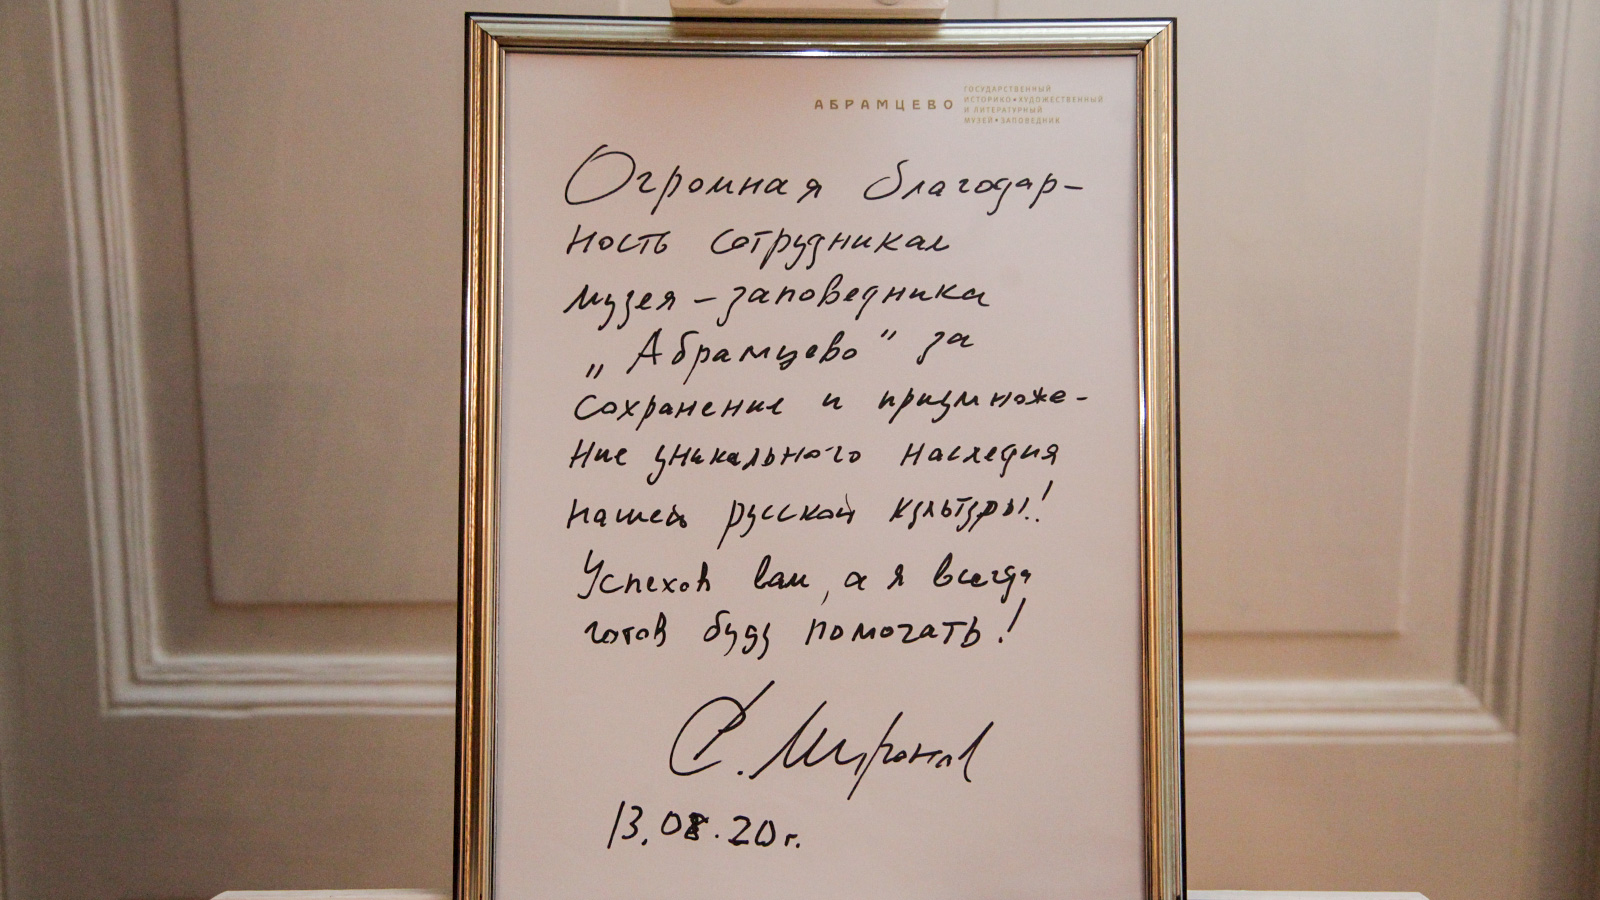 АБРАМЦЕВО
ГОСУДАРСТВЕННЫЙ
ИСТОРИКО•ХУДОЖЕСТВЕННЫЙ
И ЛИТЕРАТУРНЫЙ
МУЗЕЙ•ЗАПОВЕДНИК
Огромная благодар-
ность сотрудникам
музея-заповедника
„Абрамцево" за
сохранение и приумноже-
ние уникального наследия
нашей русской культуры!
Успехов вам, а я всегда
готов буду помогать!
С. Миронов
13.08.20г.